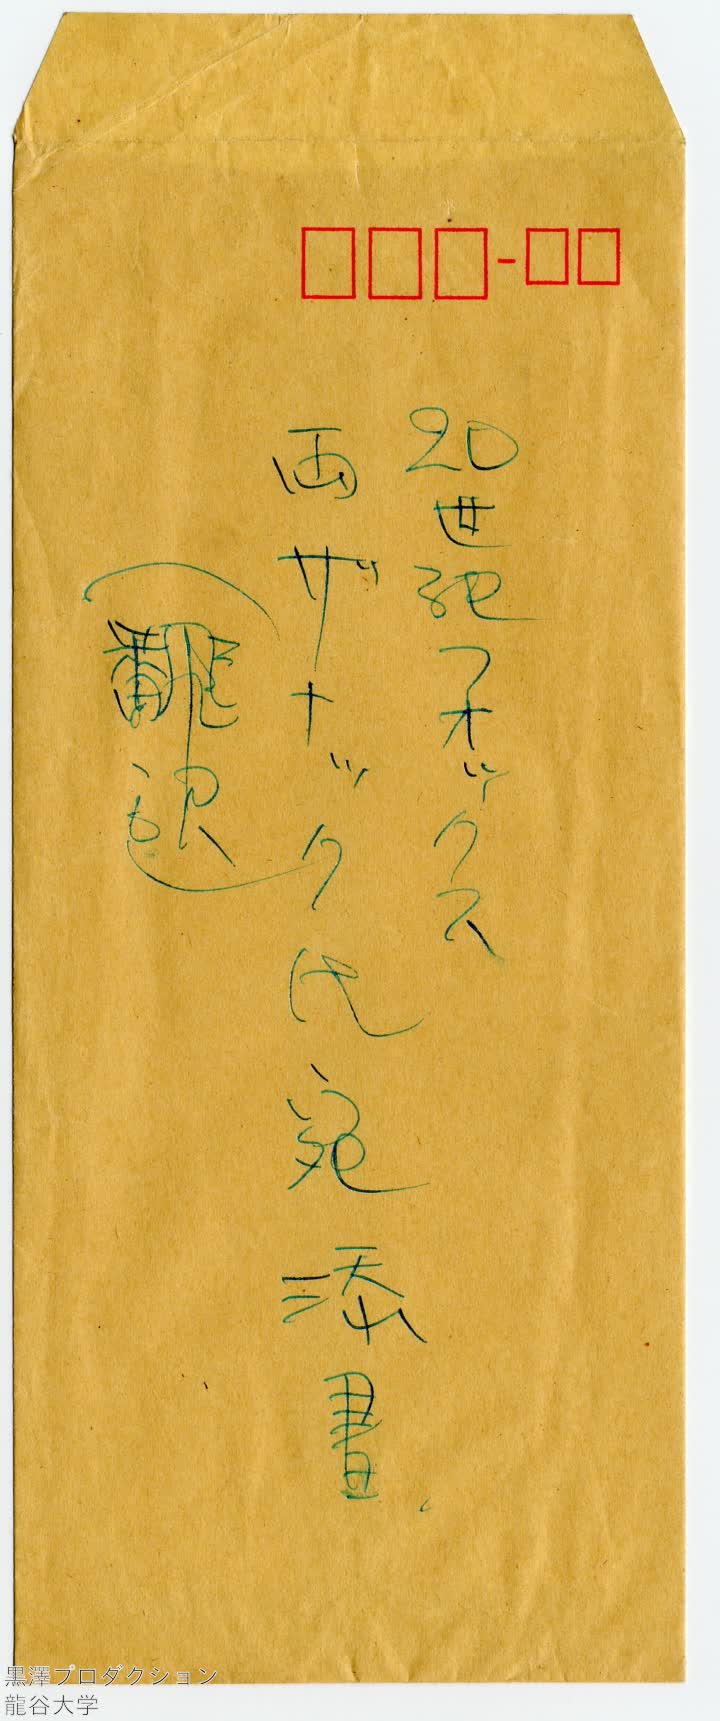 20世紀フォックス
両ザナック氏宛添書
(飜訳)
黒澤プロダクション
龍谷大学